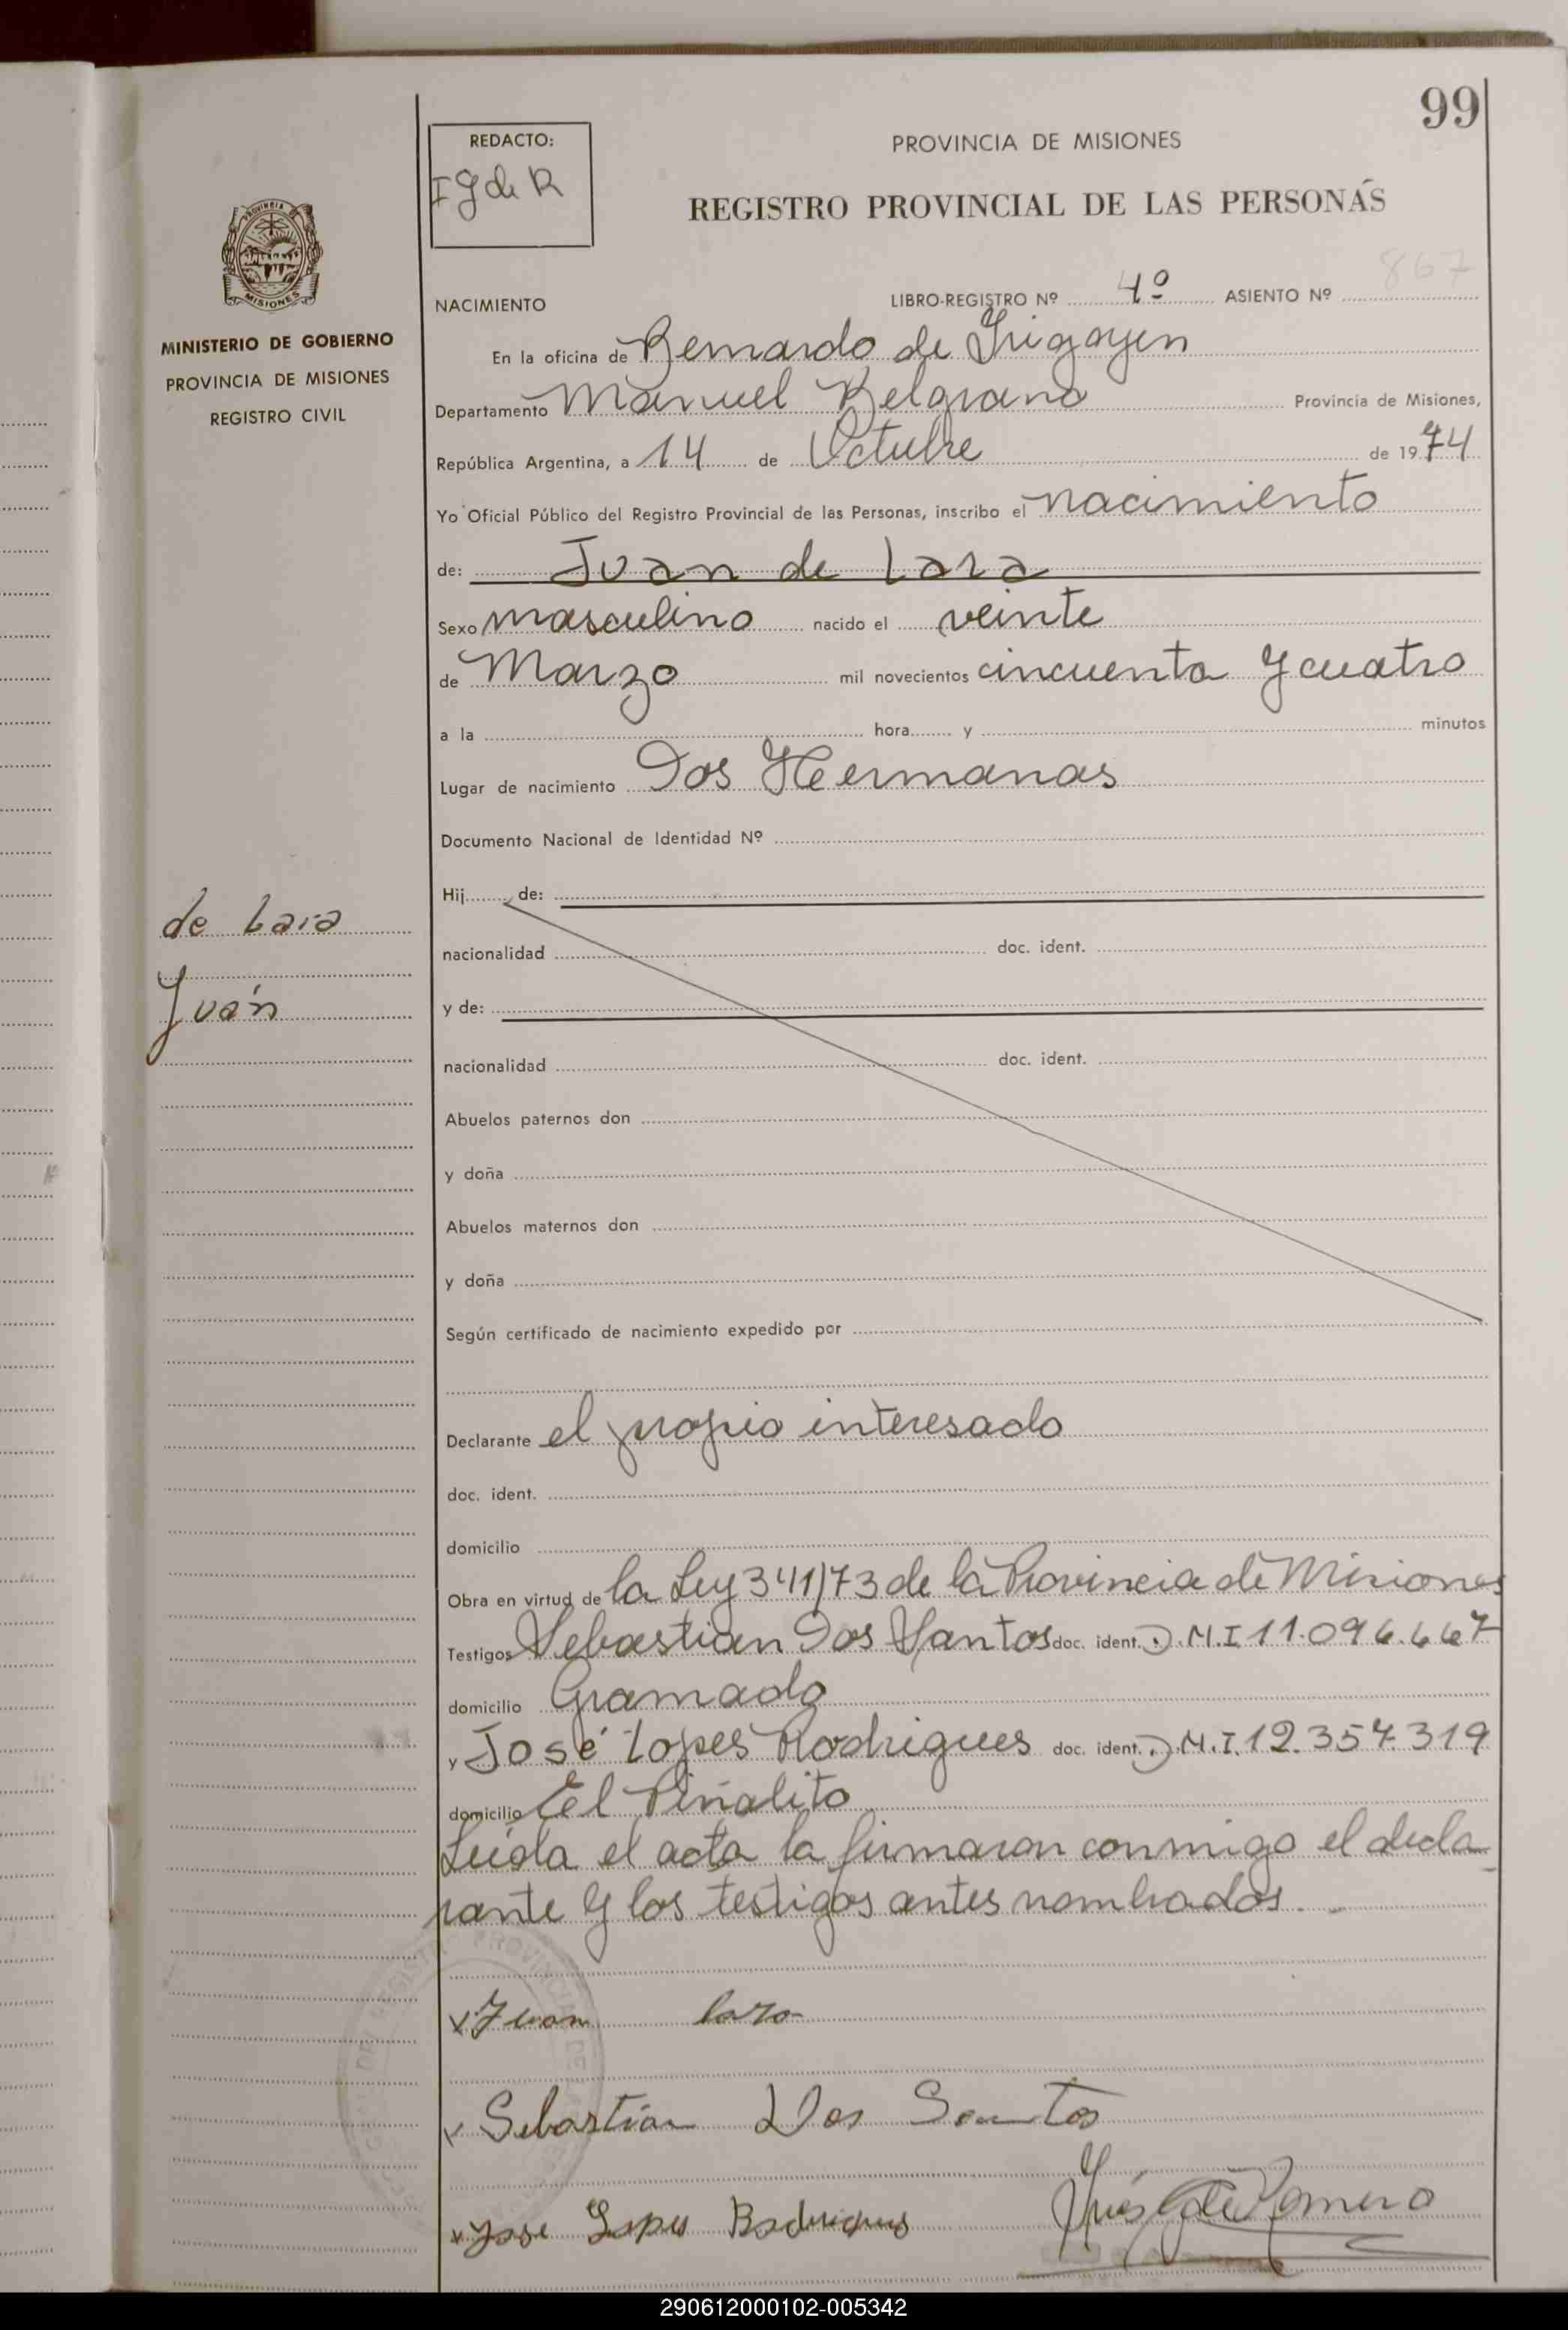 99
REDACTO:
I G de R
PROVINCIA DE MISIONES
REGISTRO PROVINCIAL DE LAS PERSONAS
PROVINCIA
MISIONES
MINISTERIO DE GOBIERNO
PROVINCIA DE MISIONES
REGISTRO CIVIL
NACIMIENTO LIBRO-REGISTRO Nº 4º ASIENTO Nº 867
En la oficina de Bernardo de Irigoyen
Departamento Manuel Belgrano Provincia de Misiones,
República Argentina, a 14 de Octubre de 1974
Yo Oficial Público del Registro Provincial de las Personas, inscribo el nacimiento
de: Juan de Lara
Sexo masculino nacido el veinte
de Marzo mil novecientos cincuenta y cuatro
a la hora y minutos
Lugar de nacimiento Dos Hermanas
Documento Nacional de Identidad Nº
Hij de:
de Lara
nacionalidad doc. ident.
Juan
y de:
nacionalidad doc. ident.
Abuelos paternos don
y doña
Abuelos maternos don
y doña
Según certificado de nacimiento expedido por
Declarante el propio interesado
doc. ident.
domicilio
Obra en virtud de la Ley 341/73 de la Provincia de Misiones
Testigos Sebastian Dos Santos doc. ident. D.N.I 11.096.667
domicilio Gramado
y José Lopes Rodrigues doc. ident. D.N.I. 12.357.319
domicilio El Piñalito
Leída el acta la firmaron conmigo el decla
rante y los testigos antes nombrados.
Juan lara
Sebastian Dos Santos
Jose Lopes Rodrigues
Inés G de Romero
290612000102-005342